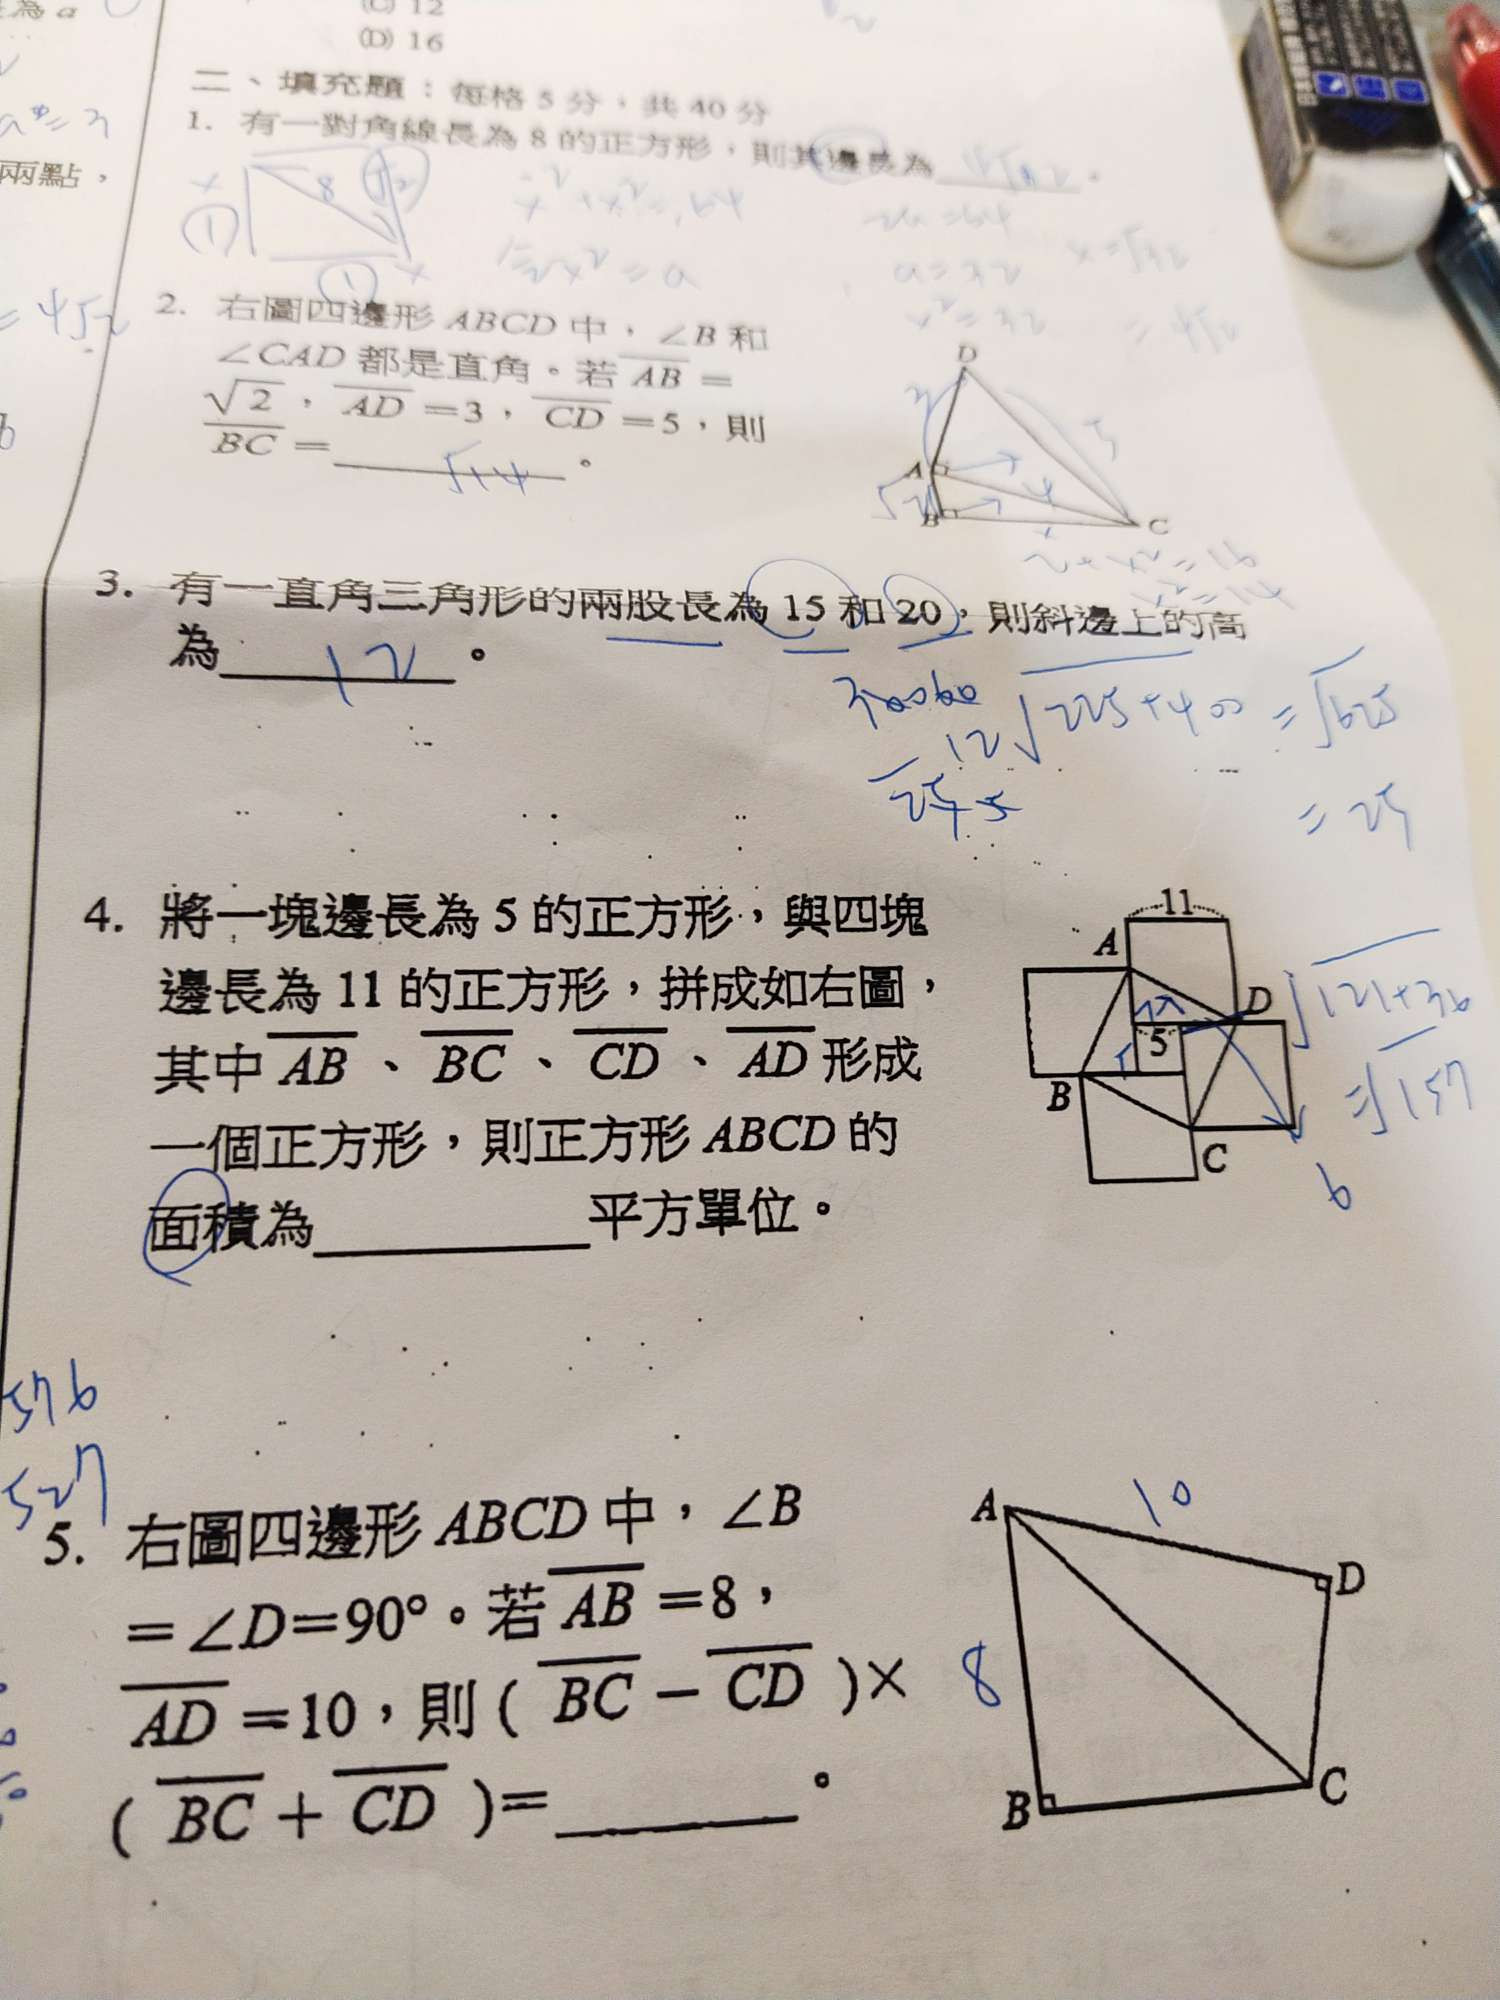 為 a
(C) 12
(D) 16
二、填充題：每格 5 分，共 40 分
1. 有一對角線長為 8 的正方形，則其邊長為
8
x² + x² = 64
2x² = a
2a = 64
a = 32
x² = 32
x = √32
= 4√2
兩點，
= 4√2
2. 右圖四邊形 ABCD 中，∠B 和
∠CAD 都是直角。若 AB =
√2，AD =3，CD =5，則
BC = √14 。
D
A
B
C
3
5
4
√2
x
2 + x² = 16
x² = 14
3. 有一直角三角形的兩股長為 15 和 20，則斜邊上的高
為 12 。
√225+400 = √625
= 25
4. 將一塊邊長為 5 的正方形，與四塊
邊長為 11 的正方形，拼成如右圖，
其中 AB、BC、CD、AD 形成
一個正方形，則正方形 ABCD 的
面積為 平方單位。
11
A
D
5
B
C
6
√121+36
= √157
576
527
5. 右圖四邊形 ABCD 中，∠B
=∠D=90°。若 AB =8，
AD =10，則 ( BC − CD )×
( BC + CD )= 。
A
10
D
8
B
C